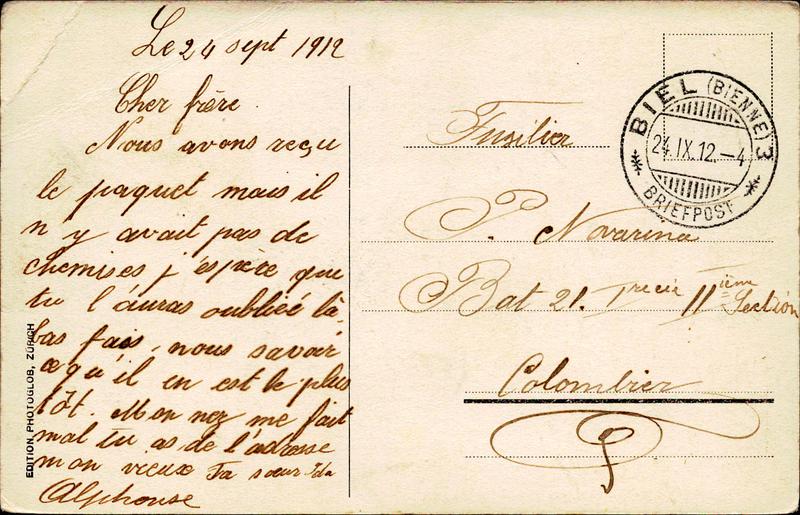 Le 24 sept 1912
Cher frère.
Nous avons reçu
le paquet mais il
n y avait pas de
chemises j'espère que
tu l'auras oubliéé là-
bas fais, nous savoir
ce qu'il en est le plus
tôt. Mon nez me fait
mal tu as de l'adresse
mon vieux Ta sœur Ida
Alphonse
EDITION PHOTOGLOB, ZÜRICH
BIEL (BIENNE) 3
24.IX.12.-4
BRIEFPOST
Fusilier
P. Novarina
Bat 21. IIième Section
Colombier